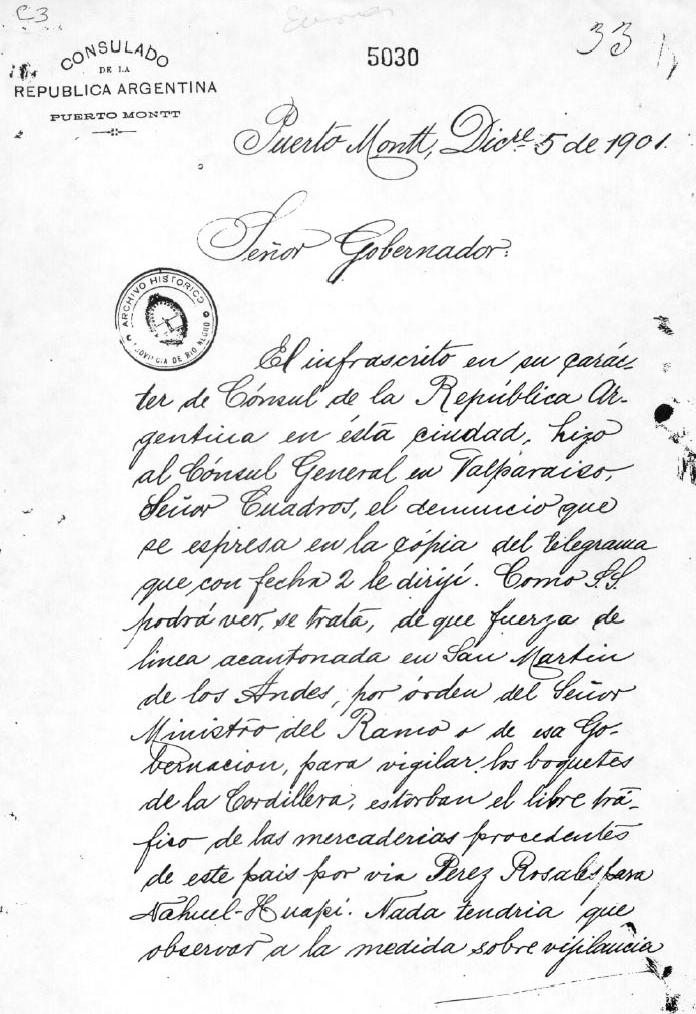 C3
5030
33
CONSULADO
DE LA
REPUBLICA ARGENTINA
PUERTO MONTT
Puerto Montt, Dicre 5 de 1901.
Señor Gobernador:
ARCHIVO HISTORICO
PROVINCIA DE RIO NEGRO
El infrascrito en su carác-
ter de Cónsul de la República Ar-
gentina en ésta ciudad, hizo
al Cónsul General en Valparaiso,
Señor Cuadros, el denuncio que
se espresa en la cópia del telegrama
que con fecha 2 le dirijí. Como S.S.
podrá ver, se trata, de que fuerza de
linea acantonada en San Martin
de los Andes, por órden del Señor
Ministro del Ramo o de esa Go-
bernacion, para vigilar los boquetes
de la Cordillera, estorban el libre trá-
fico de las mercaderias procedentes
de este pais por via Perez Rosales para
Nahuel-Huapí. Nada tendria que
observar a la medida sobre vijilancia